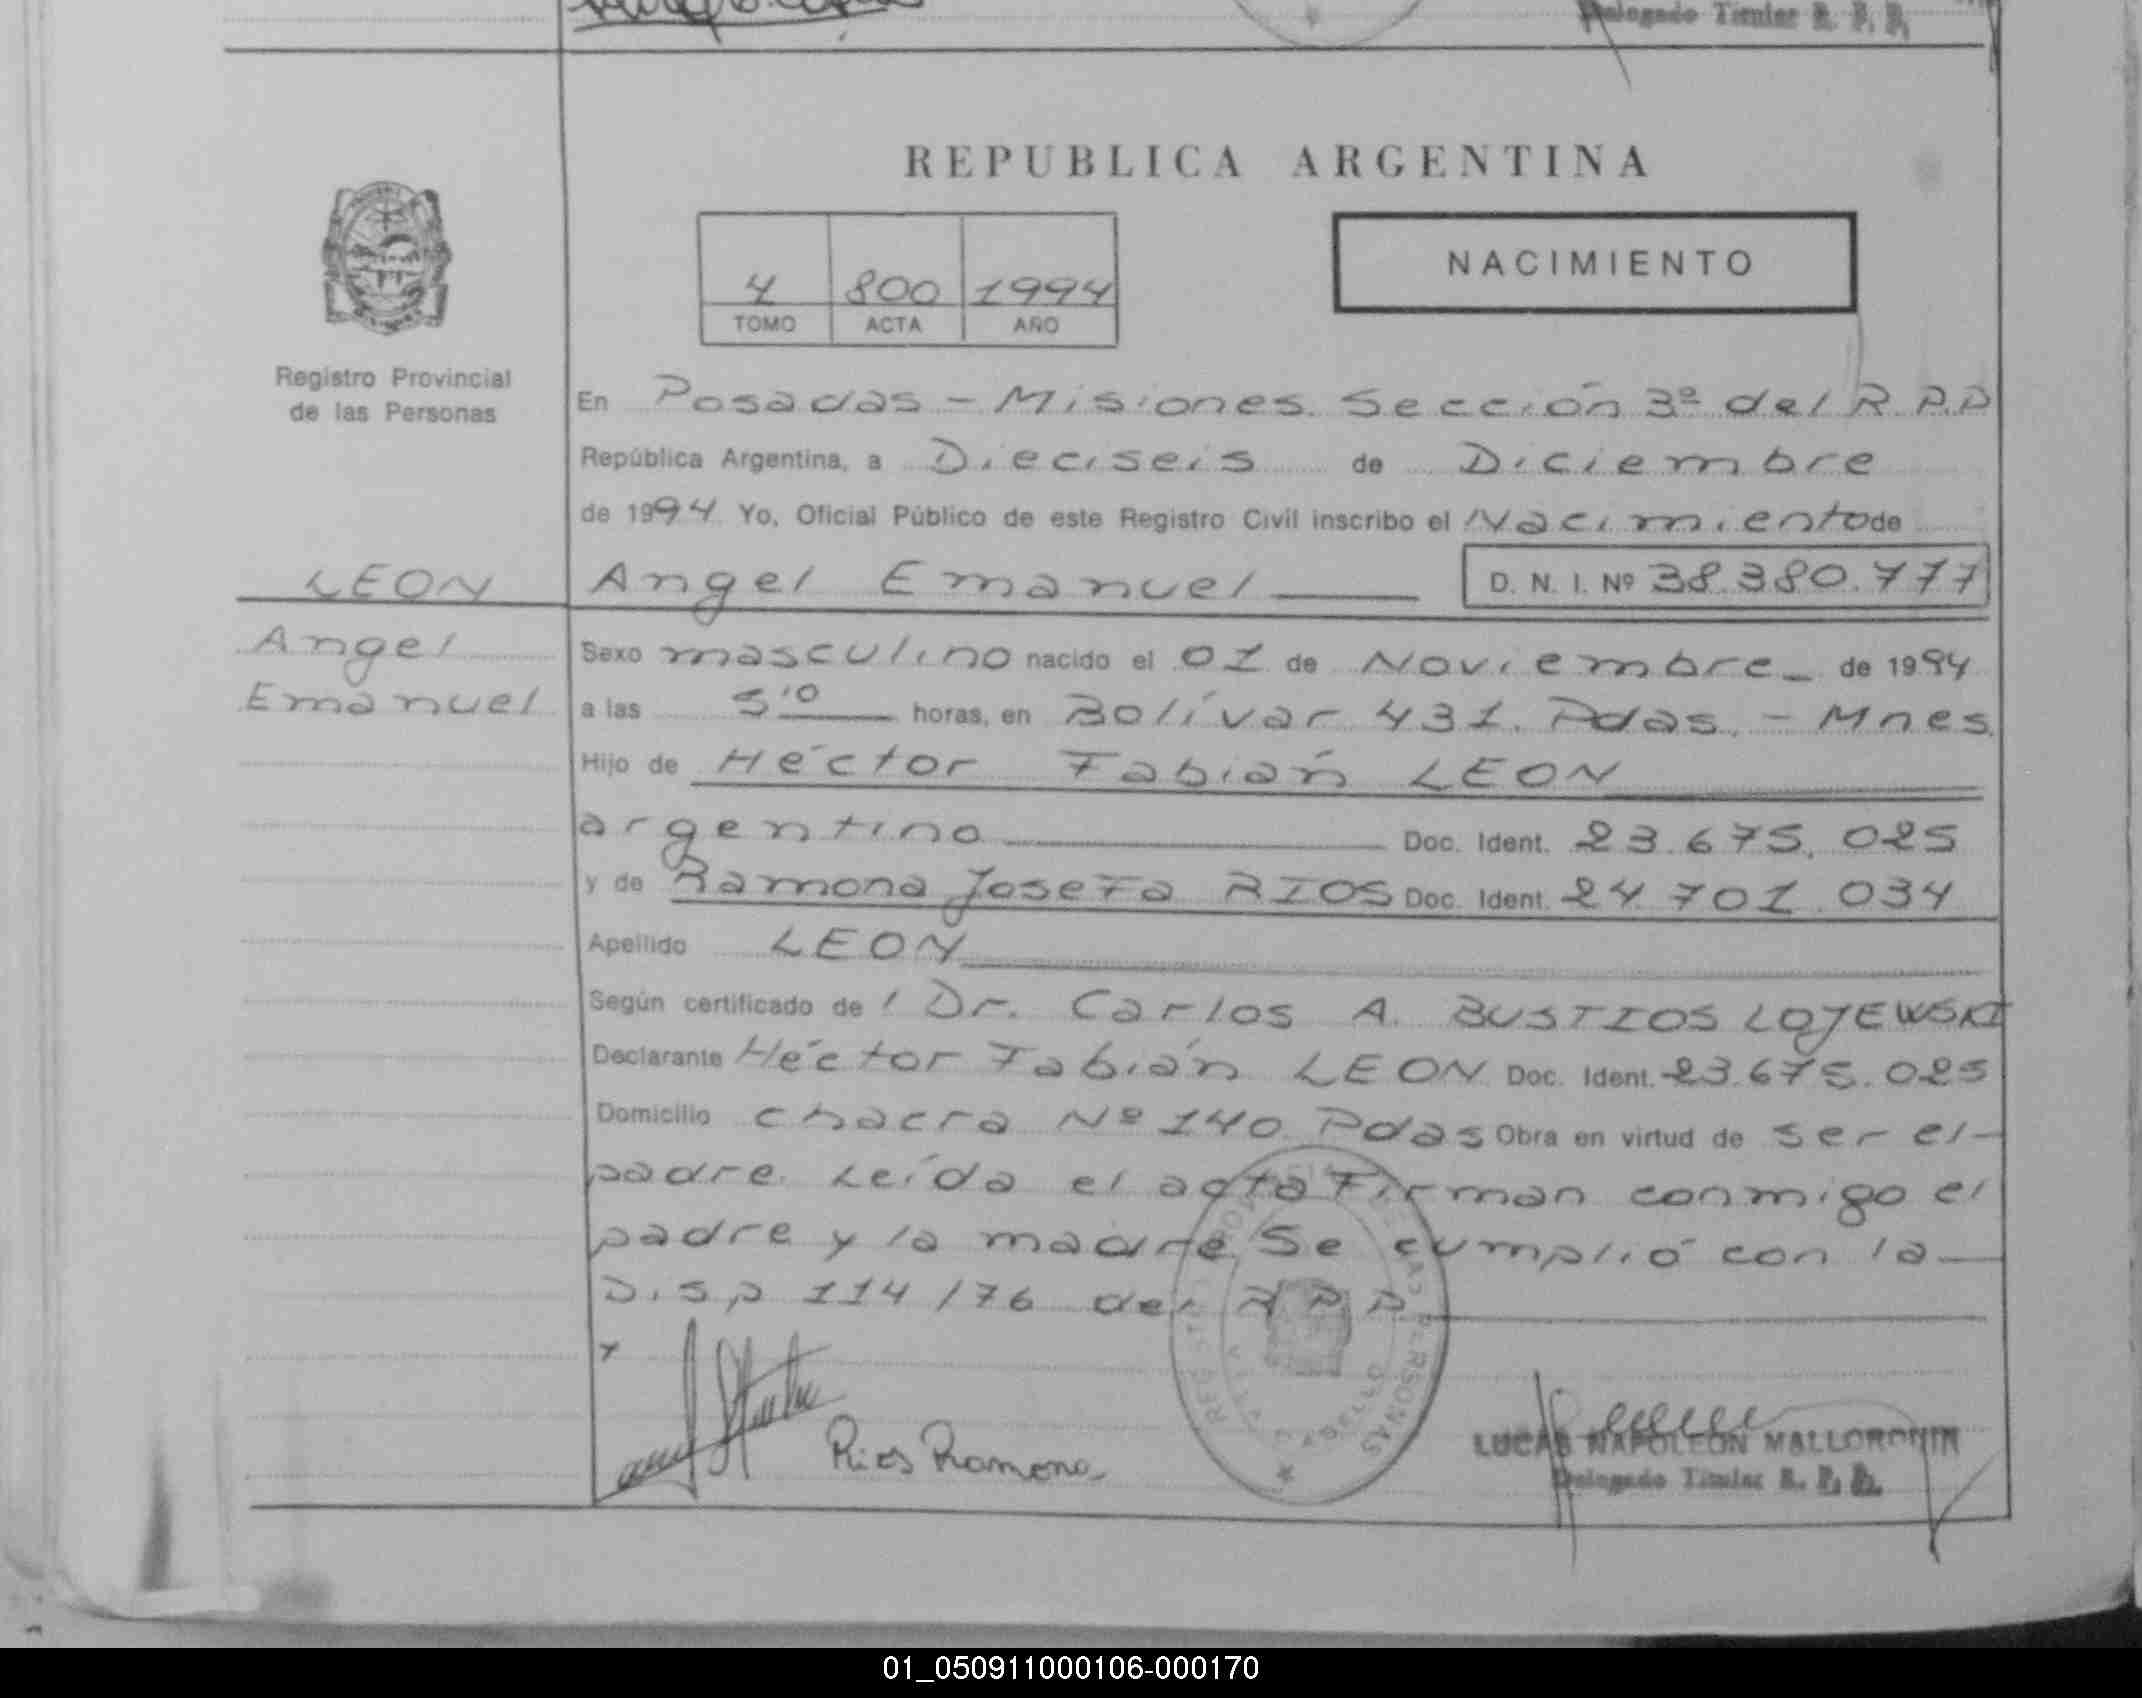 Delegado Titular R. P. P.
REPUBLICA ARGENTINA
4 800 1994
TOMO ACTA AÑO
NACIMIENTO
Registro Provincial
de las Personas
En Posadas - Misiones. Sección 3º del R.P.P
República Argentina, a Dieciseis de Diciembre
de 1994 Yo, Oficial Público de este Registro Civil inscribo el Nacimiento de
LEON
Angel Emanuel
D. N. I. Nº 38.380.777
Angel
Emanuel
Sexo masculino nacido el 01 de Noviembre de 1994
a las 5'10 horas, en Bolívar 431. Pdas. - Mnes.
Hijo de Héctor Fabián LEON
argentino Doc. Ident. 23.675.025
y de Ramona Josefa RIOS Doc. Ident. 24.701.034
Apellido LEON
Según certificado de l Dr. Carlos A. BUSTIOS LOJEWSKI
Declarante Héctor Fabián LEON Doc. Ident. 23.675.025
Domicilio chacra Nº 140 Pdas Obra en virtud de ser el-
padre. Leída el acta Firman conmigo el
padre y la madre Se cumplió con la
Disp 114/76 del R P P
x
Rios Ramona
REGISTRO PERSONAS
LUCAS NAPOLEON
Delegado Titular R. P. P.
01_050911000106-000170